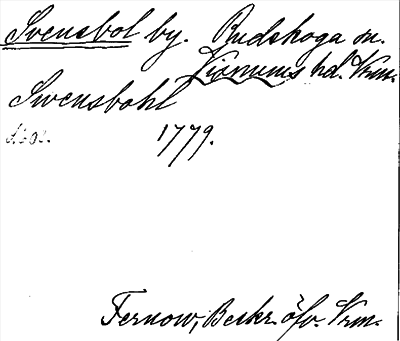 Svensbol by. Rudskoga sn.
Visnums hd. Vrm.
Swensbohl
1779.
Fernow, Beskr. öfv. Vrm.